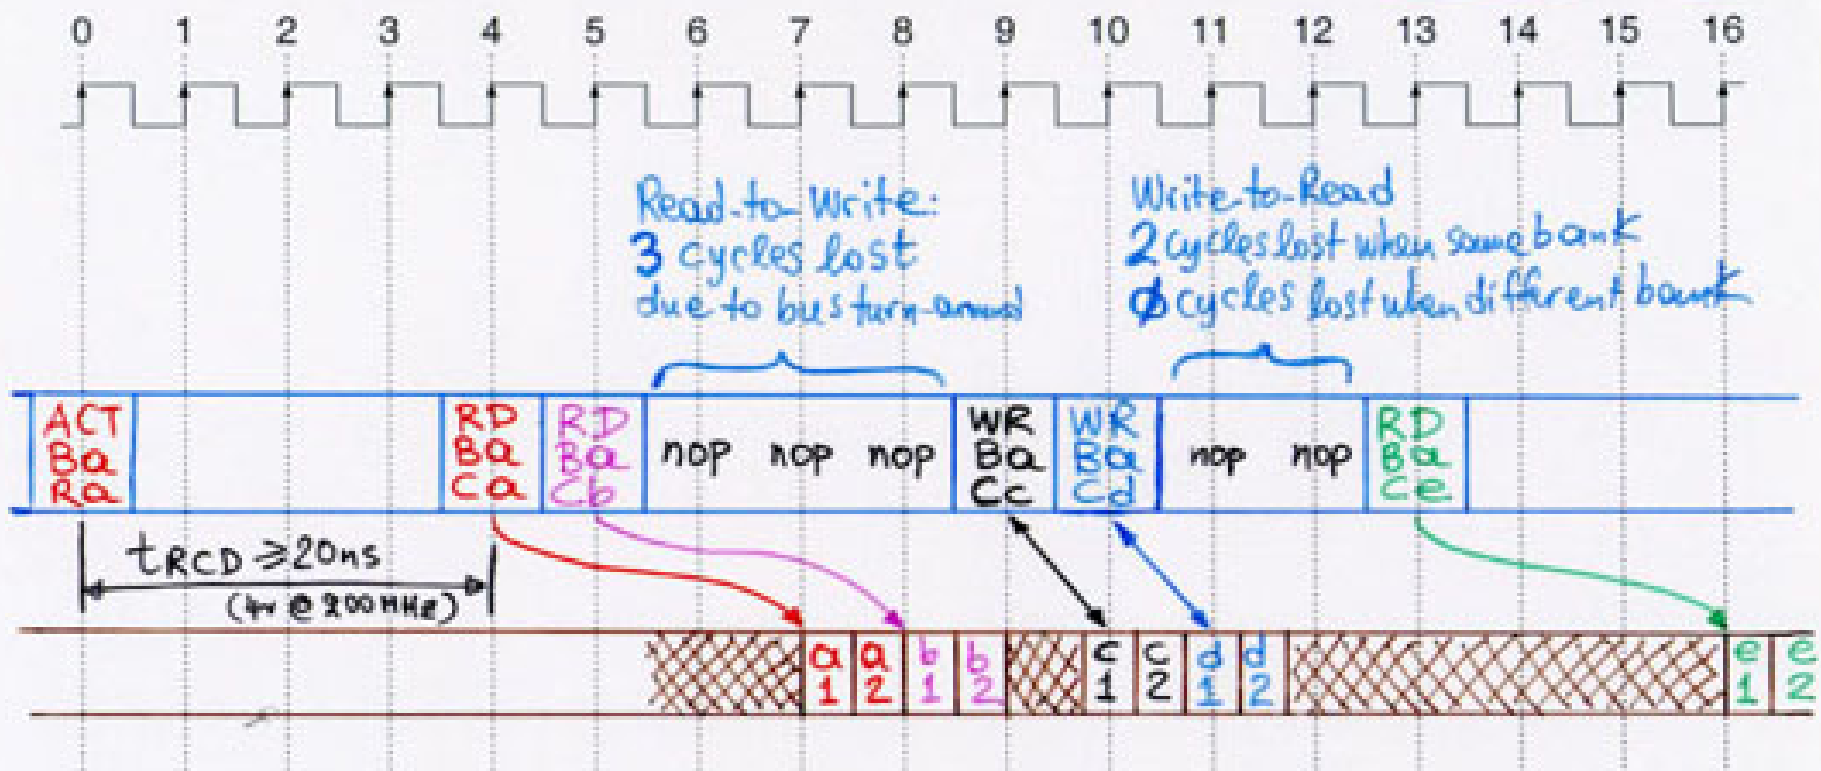 0 1 2 3 4 5 6 7 8 9 10 11 12 13 14 15 16
Read-to-Write:
3 cycles lost
due to bus turn-around
Write-to-Read
2 cycles lost when same bank
0 cycles lost when different bank
ACT
Ba
Ra
RD
Ba
Ca
RD
Ba
Cb
nop nop nop
WR
Ba
Cc
WR
Ba
Cd
nop nop
RD
Ba
Ce
tRCD ≥20ns
@ 200MHz)
a
1
a
2
b
1
b
2
c
1
c
2
d
1
d
2
e
1
e
2